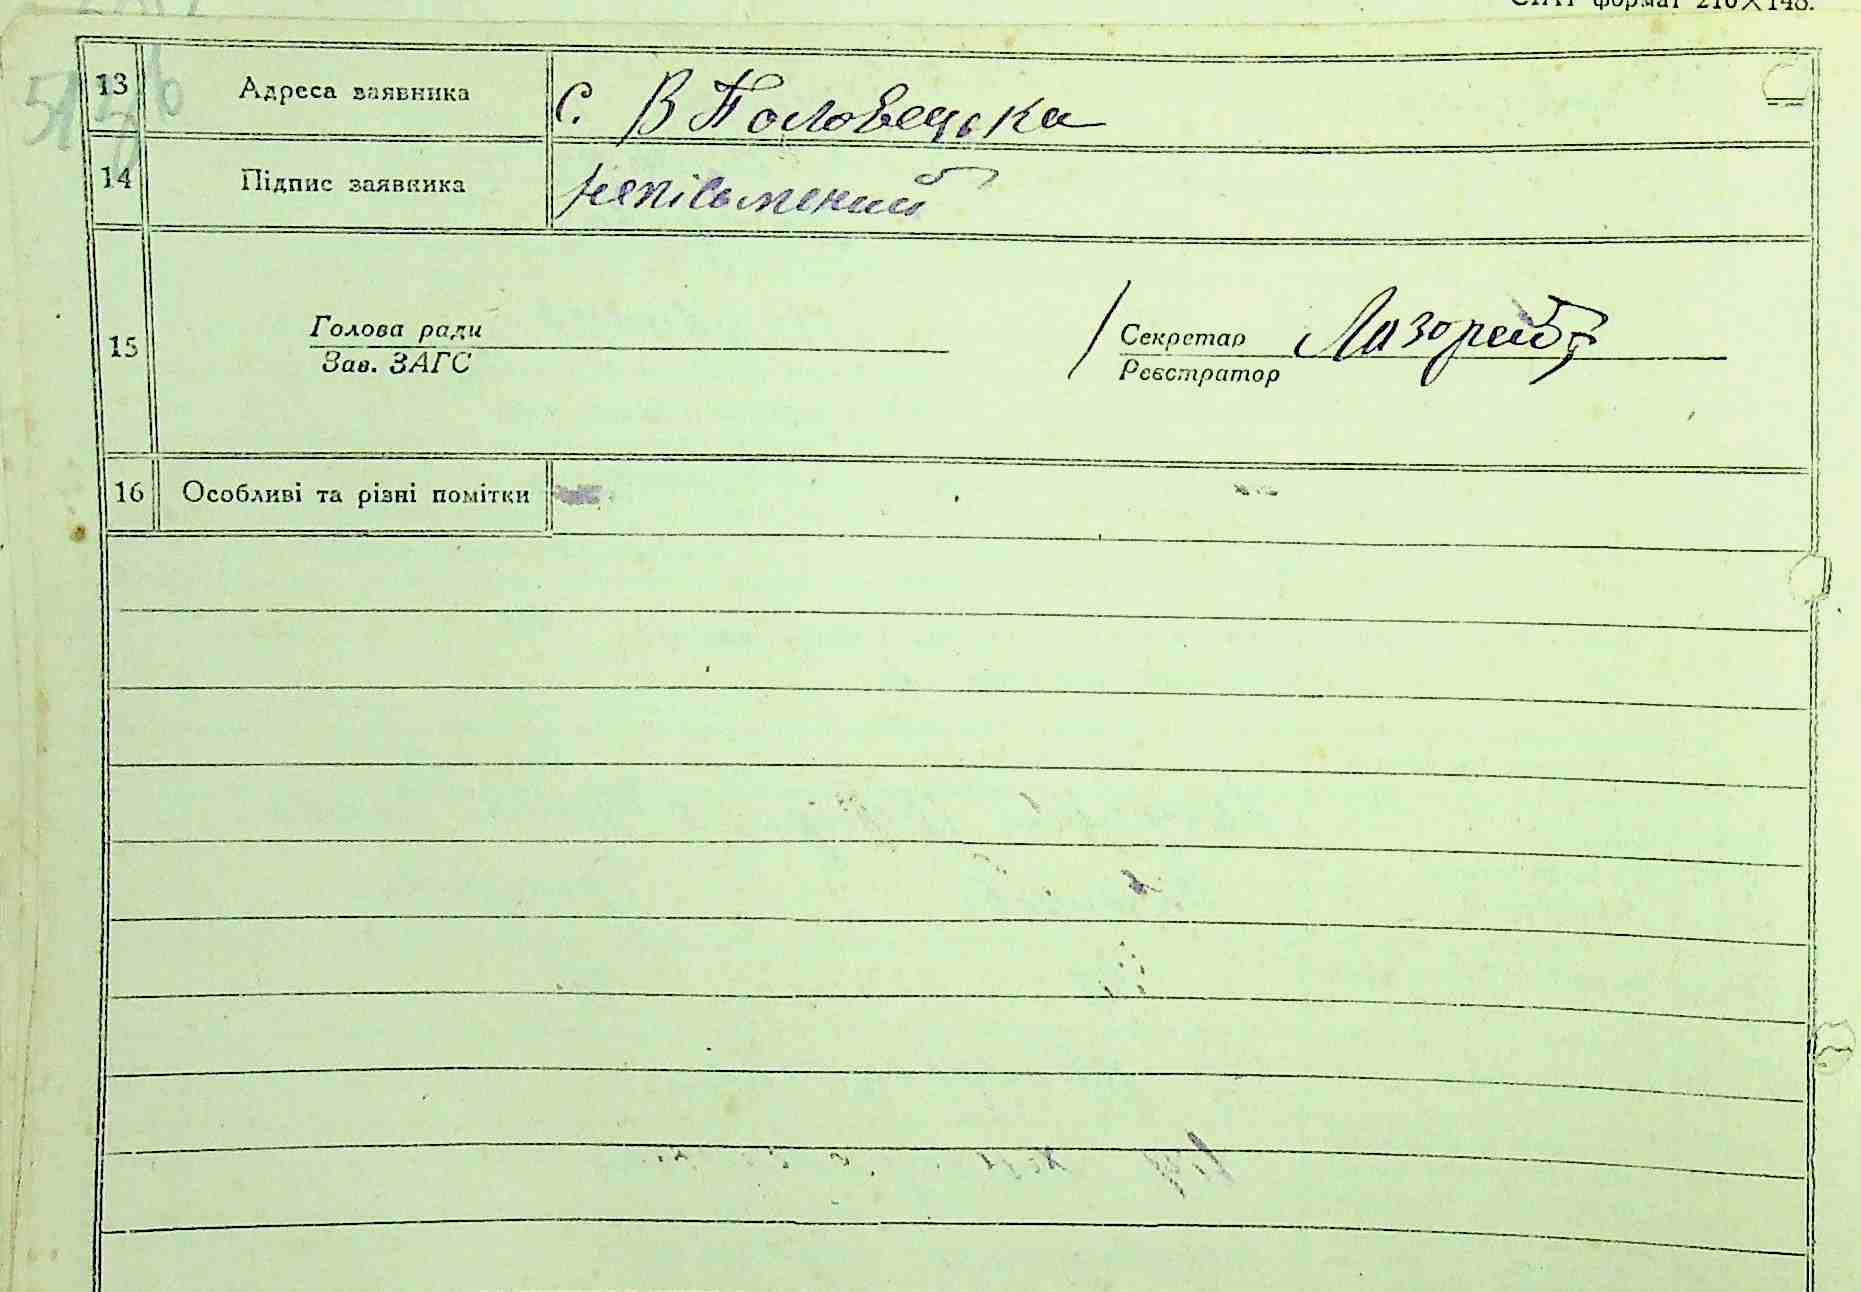 формат 210×148.
13 Адреса заявника с. В Половецька
14 Підпис заявника неписьмений
15 Голова ради Секретар
Зав. ЗАГС Реєстратор
16 Особливі та різні помітки